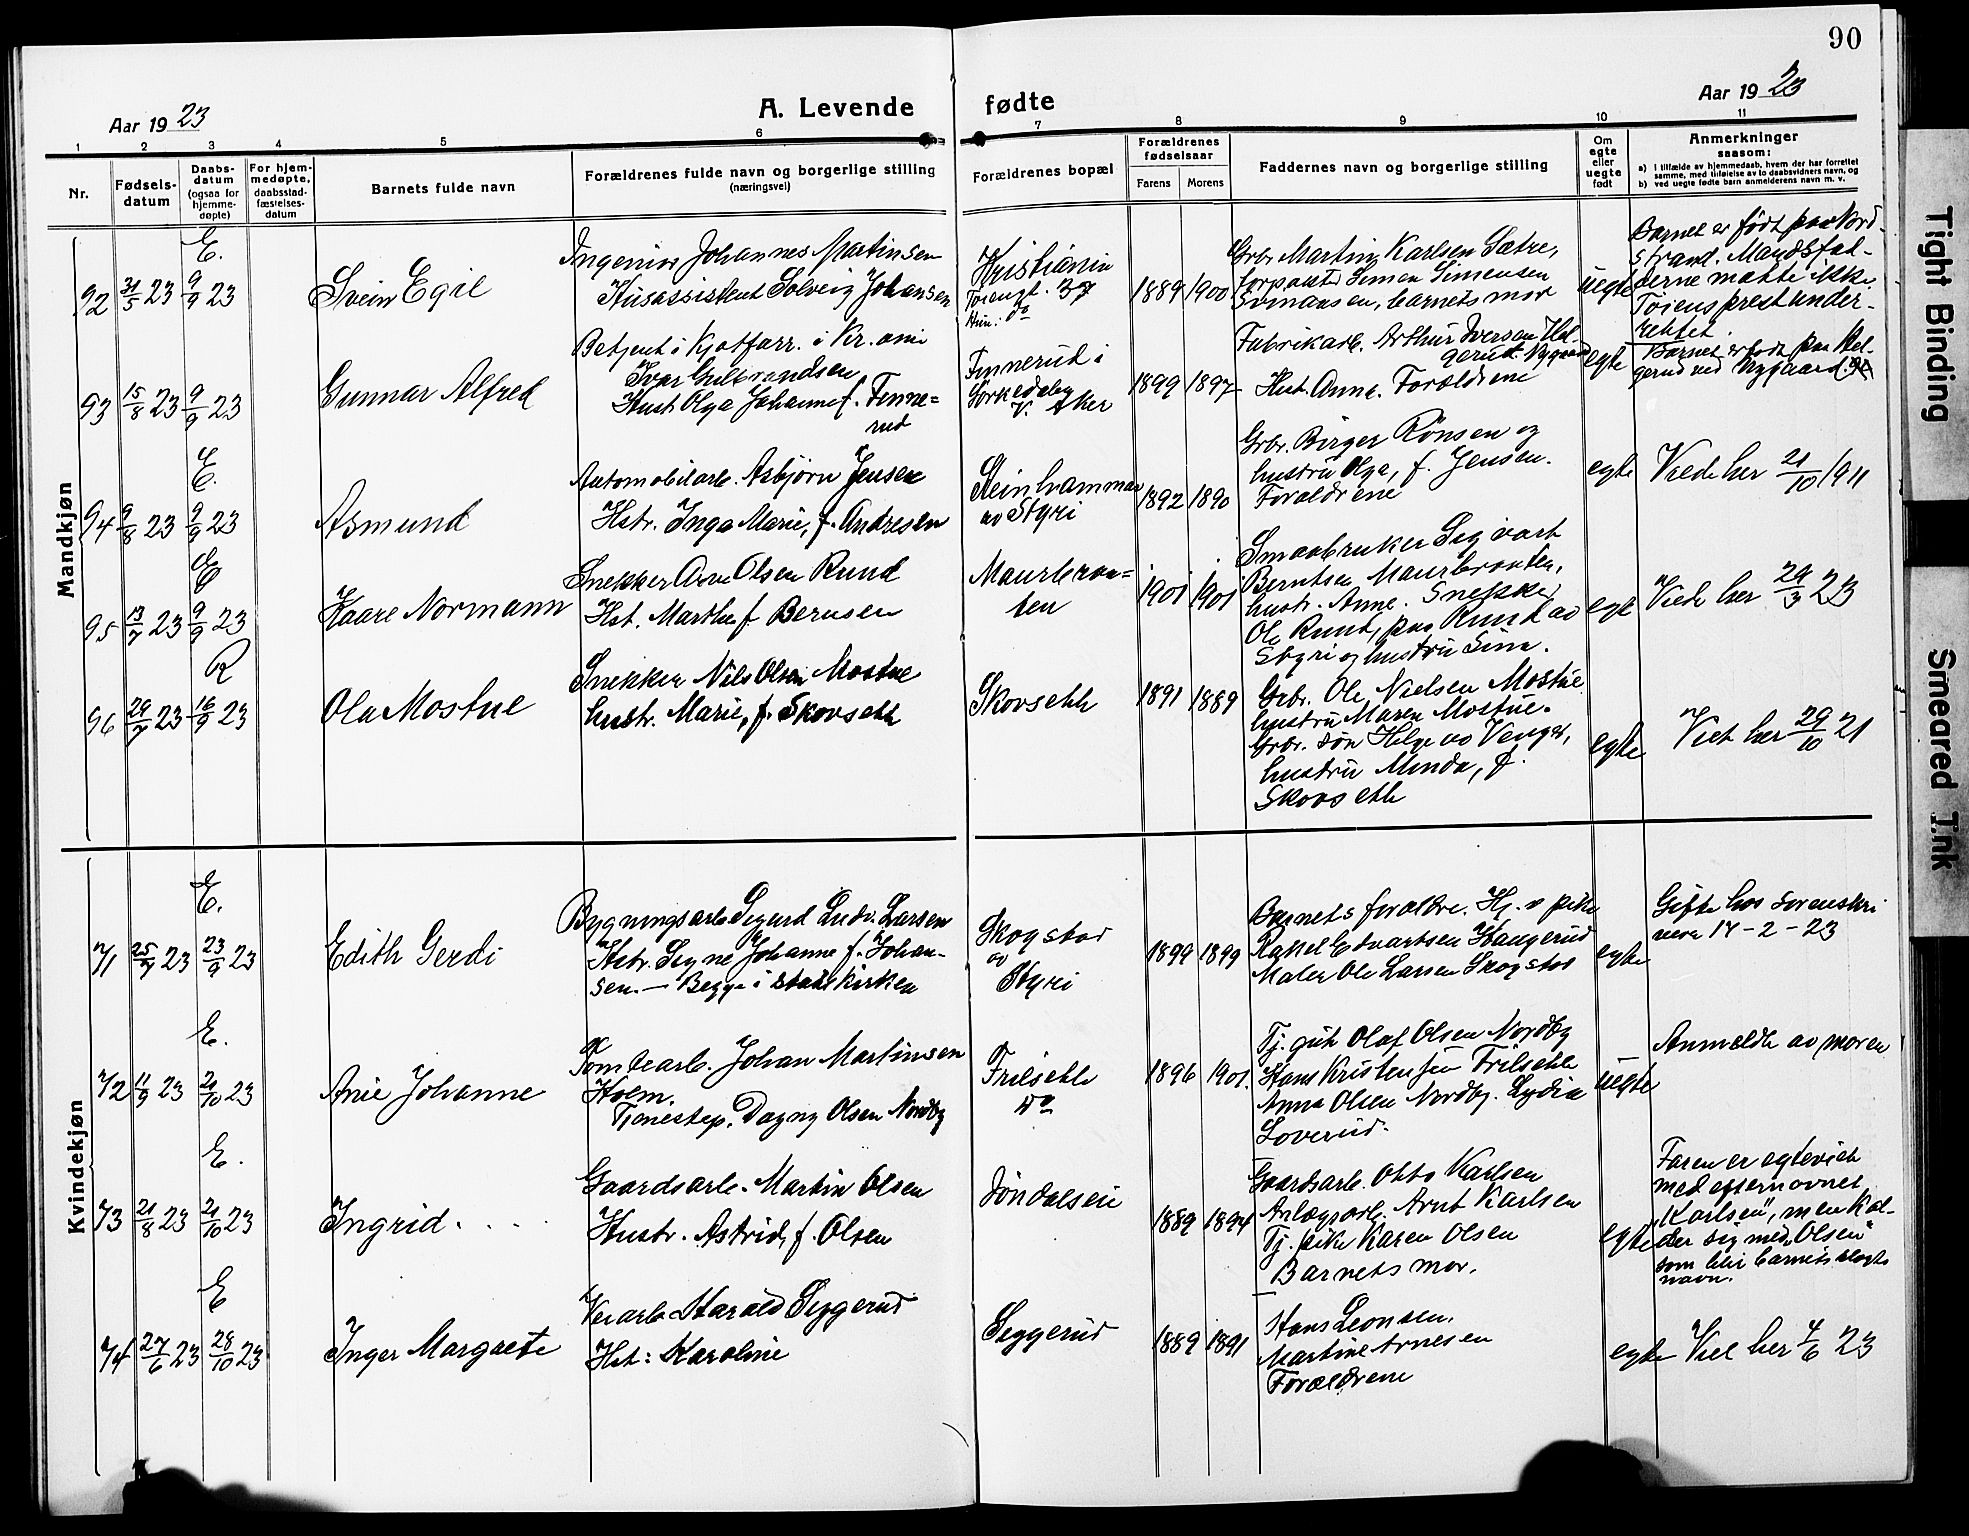 90
Aar 1923
A. Levende fødte
Aar 1923
1 2 3 4 5 6 7 8 9 10 11
Nr.
Fødsels-
datum
Daabs-
datum
(ogsaa for
hjemme-
døpte)
For hjem-
medøpte,
daabsstad-
fæstelses-
datum
Barnets fulde navn
Forældrenes fulde navn og borgerlige stilling
(næringsvei)
Forældrenes bopæl
Forældrenes
fødselsaar
Farens Morens
Faddernes navn og borgerlige stilling
Om
egte
eller
uegte
født
Anmerkninger
saasom:
a) i tilfælde av hjemmedaab, hvem der har forrettet
samme, med tilføielse av to daabsvidners navn, og
b) ved uegte fødte barn anmelderens navn m. v.
Mandkjøn
E.
92 31/5 23 9/9 23
Svein Egil
Ingeniør Johannes Martinsen
Husassistent Solveig Johansen
Kristiania
Toiengt. 37
Hun: do
1889 1900
Grbr. Martin Karlsen Sætre,
forpakter Simen Simensen
barnets mor
uegte
Barnet er født paa Nord-
strand. Mandsfad-
derne møtte ikke.
Toiens prest under-
rettet.
93 15/8 23 9/9 23
Gunnar Alfred
Betjent i Kjøtforr. i Kr.ania
Ivar Gulbrandsen
Hust. Olga Johanne f. Finne=
rud
Finnerud i
Sørkedalen
V. Aker
1899 1897
Fabrikarb. Arthur Iversen Hel-
gerud Nygaard
Hust. Anne. Forældrene
egte
Barnet er født paa Hel-
gerud ved Nygaard
E.
94 9/8 23 9/9 23
Asmund
Automobilarb. Asbjørn Jensen
Hstr. Inga Marie, f. Andresen
Steinhammar
av Styri
1892 1890
Grbr. Birger Rönsen og
hustru Olga, f. Jensen.
Forældrene
egte
Viede her 21/10 1911
E
95 13/7 23 9/9 23
Kaare Normann
Snekker Arne Olsen Rund
Hst. Marthe f. Bernsen
Maurbraa=
ten
1901 1901
Smaabruker Sigvart
Berntsen Maurbraaten,
hustr. Anne. Snekker
Ole Rund, paa Rund av
Styri og hustru Sina.
egte
Viede her 29/3 23
R
96 29/7 23 16/9 23
Ola Mostue
Snekker Nils Olsen Mostue
hustr. Marie, f. Skovseth
Skovseth
1891 1889
Grbr. Ole Nielsen Mostue
hustru Maren Mostue.
Grbr. søn Helge av Venger,
hustru Minda, f.
Skovseth
egte
Viet her 29/10 21
Kvindekjøn
E.
71 25/7 23 23/9 23
Edith Gerdi
Bygningsarb. Sigurd Ludv. Larsen
Hstr. Signe Johanne f. Johan-
sen. — Begge i statskirken
Skogstad
av
Styri
1899 1899
Barnets forældre. Hj. v. pike
Rakel Edvartsen Haugerud
Maler Ole Larsen Skogstad
egte
Gifte hos sorenskri
veren 14-2-23
E.
72 11/9 23 21/10 23
Anie Johanne
Tomtearb. Johan Martinsen
Holm.
Tjenestep. Dagny Olsen Nordby
Frilseth
do
1896 1901.
Tj. gut Olaf Olsen Nordby
Hans Kristensen Frilseth
Anna Olsen Nordby. Lydia
Loverud.
uegte
Anmeldt av moren
E.
73 21/8 23 21/10 23
Ingrid. . . .
Gaardsarb. Martin Olsen
Hustr. Astrid, f. Olsen
Jöndalseie
1889 1894
Gaardsarb. Otto Karlsen
Anlægsarb. Arnt Karlsen
Tj. pike Karen Olsen
Barnets mor.
egte
Faren er egteviet
med efternavnet
„Karlsen", men kal-
der sig med „Olsen"
som blir barnets slegts
navn.
E
74 27/6 23 28/10 23
Inger Margrete
Veiarb. Harald Seggerud
Hst: Karoline
Seggerud
1889 1891
Hans Leonsen,
Martine Arnesen
Forældrene
egte
Viet her 4/6 23
Tight Binding
Smeared Ink